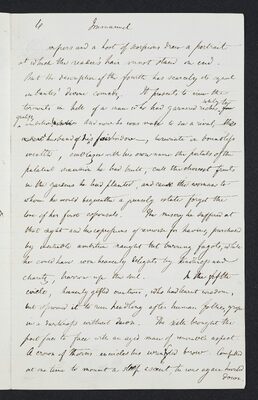 4 Immanuel
and a host of scorpions drew a portrait
at which the reader's hair must stand on end.
But the description of the fourth has scarcely its equal
in Dante's Divine Comedy. It presents to view the
torments in hell of a man who had garnered riches
and now he was made to see a rival, the
husband of his widow, luxuriate in boundless
wealth, with his own name the portals of the
palatial mansion he had built, cull the choicest fruits
in the gardens he had planted, and the woman to
whom he would bequeath a princely estate forget the
love of her first espousals. The misery he suffered at
that sight and his of remorse for having, purchased
by ambition naught but burning fagots, while
he could have won heavenly delights by kindness and
charity, harrow up the soul. In the fifth
circle, heavenly gifted creatures, who had learnt wisdom,
but spurned it to run headlong after human follies, grope
in a darkness without dawn. The veil brought the
poet face to face with an aged man of aspect.
A crown of thorns encircled his wrinkled brow. Compelled
at one time to mount a steep ascent he was again hurled
down